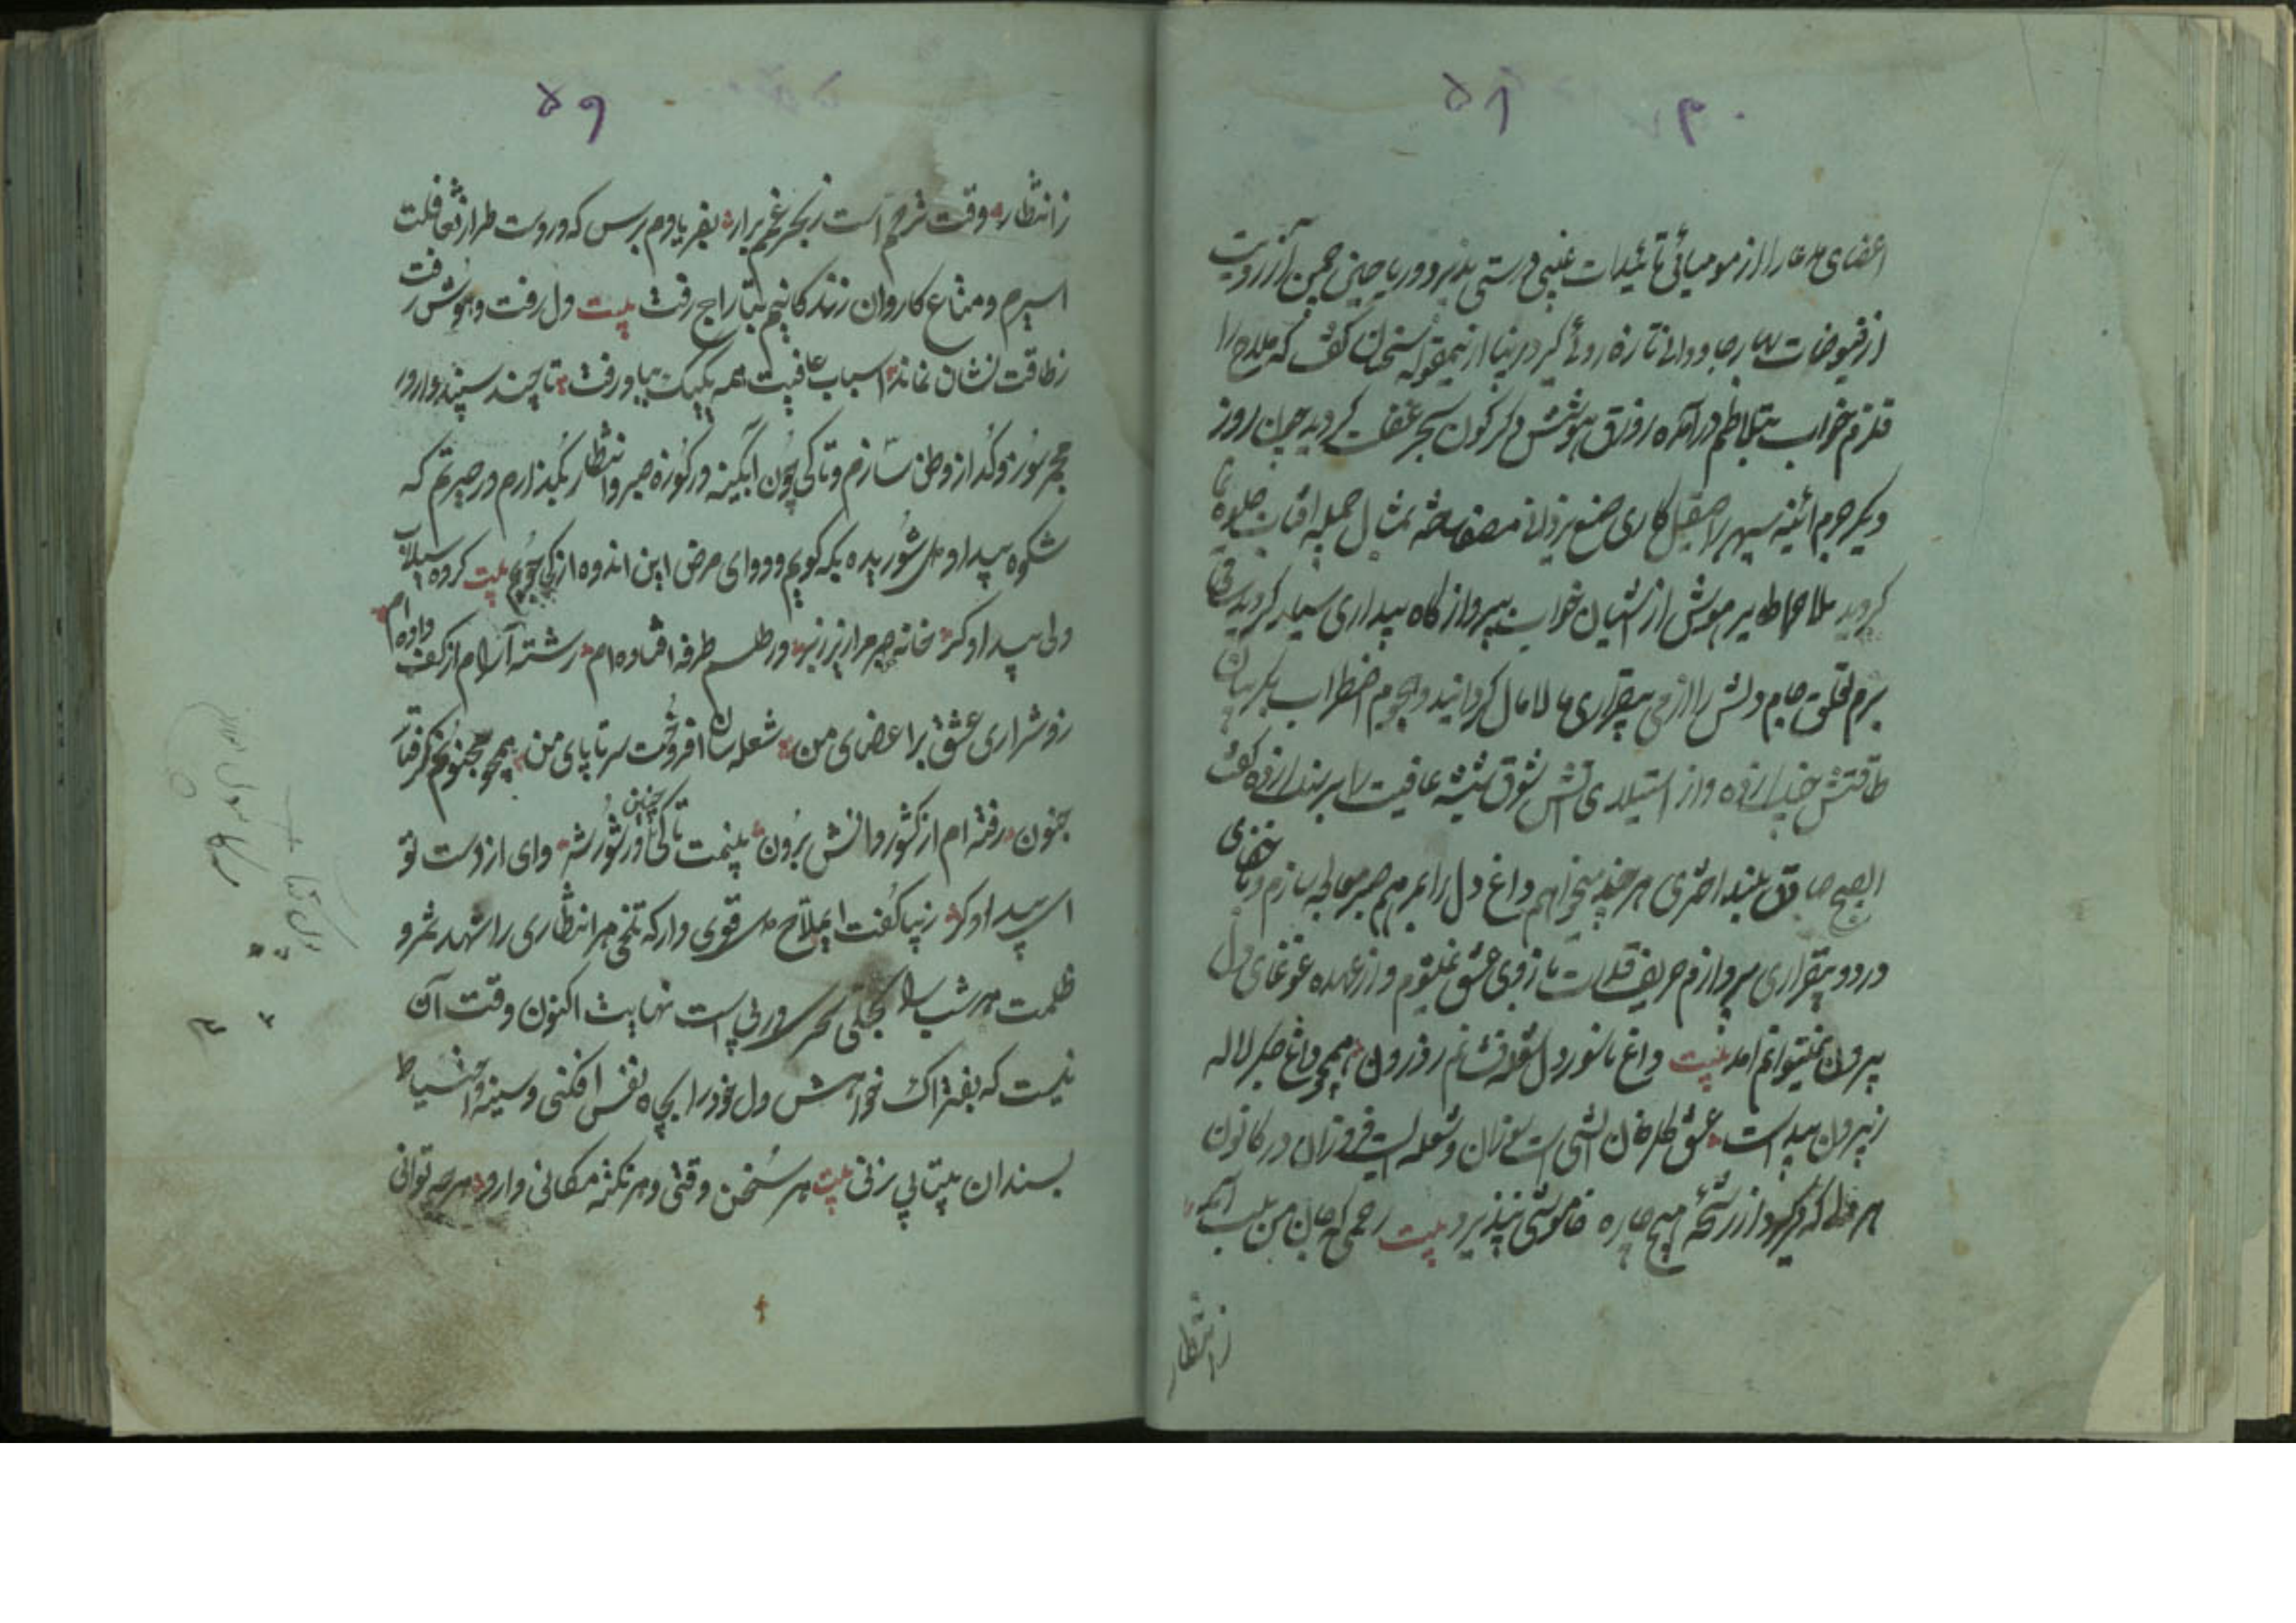 ۵۸
اعضای مدعا را از مومیائی تائیدات غیبی درستی پذیرد و ریاحین چمن آرزویت
از فیوضات بهار جاودانی تازه روئی گیرد زیبا ازینمقوله سخنان گفت که ملاح را
قلزم خواب بتلاطم درآمده زورق هوشش دگرگون ببحر غفلت گردید چون روز
دیگر جرم ائینه سپهر را صیقل کاری صنع یزدانی مصفا ساخته تمثال جمیله افتاب جلوه نما
گردید ملاح را طایر هوش از اشیان خواب بپرواز گاه بیداری سیار گردید ساقی
بزم قلق جام دلش را از می بیقراری مالامال گردانید و هجوم اضطراب بگریبان
طاقتش چنگ زده و از استیلای اتش شوق شیشه عافیت را بر سندان زده گفت
الصبح صادق بلند اختری هر چند میخواهم داغ دل را بمرهم صبر معالجه سازم و با تقاضای
درد و بیقراری پردازم حریف قدرت بازوی عشق نمیشوم و از عهده غوغای دل
بیرون نمیتوانم امد بیت داغ ناسور دل شعله فشانم ز درون همچو داغ جگر لاله
ز بیرون پیداست عشق گلرخان اتشی است سوزان و شعله ایست فروزان در کانون
هر دل که درگیرد از رشحه هیچ چاره خاموشی نپذیرد بیت رحمی که جان من بلب آمد
ز انتظار
۵۹
ز انتظار وقت ترحم است ز بحر غم برار بفریادم برس که دردست طرار تغافلت
اسیرم و متاع کاروان زندگانیم بتاراج رفت بیت دل رفت و هوش رفت
ز طاقت نشان نماند اسباب عافیت همه یکیک بباد رفت تا چند سپندوار در
مجمر سوز و گداز وطن سازم و تا کی چون ابگینه در کوزه صبر و انتظار بگدازم در حیرتم که
شکوه بیداد دل شوریده بکه گویم و دوای مرض این اندوه از کی جویم بیت کرده سیلاب
دلی بیدادگر خانه صبر مرا زیر زبر در طلسم طرفه افتاده ام رشته آرام از کف داده ام
زد شراری عشق بر اعضای من شعله سان افروخت سر تا پای من همچو مجنونم گرفتار
جنون رفته ام از کشور دانش برون بینمت تا کی چنین در شور شر وای از دست تو
ای بیدادگر زیبا گفت ایملاح دل قوی دار که تلخی هر انتظاری را شهد ثمر و
ظلمت هر شب را تجلی سحر در پی است نهایت اکنون وقت آن
نیست که بفتراک خواهش دل خود را بچاه نفس افکنی و سینه احتیاط
بسندان بیتابی زنی بیت هر سخن وقتی و هر نکته مکانی دارد هر چه توانی